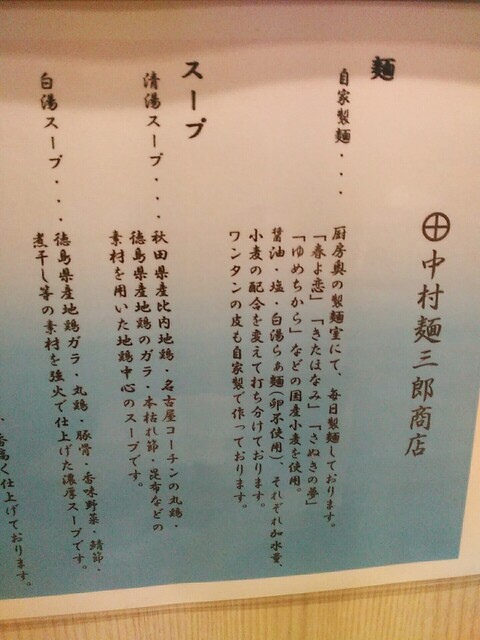 中村麺三郎商店
麺
自家製麺・・・
厨房奥の製麺室にて、毎日製麺しております。
「春よ恋」「きたほなみ」「さぬきの夢」
「ゆめちから」などの国産小麦を使用。
醤油・塩・白湯らぁ麺(卵不使用)、それぞれ加水量、
小麦の配合を変えて打ち分けております。
ワンタンの皮も自家製で作っております。
スープ
清湯スープ・・・
秋田県産比内地鶏・名古屋コーチンの丸鶏・
徳島県産地鶏のガラ・本枯れ節・昆布などの
素材を用いた地鶏中心のスープです。
白湯スープ・・・
徳島県産地鶏ガラ・丸鶏・豚骨・香味野菜・鯖節・
煮干し等の素材を強火で仕上げた濃厚スープです。
香高く仕上げております。